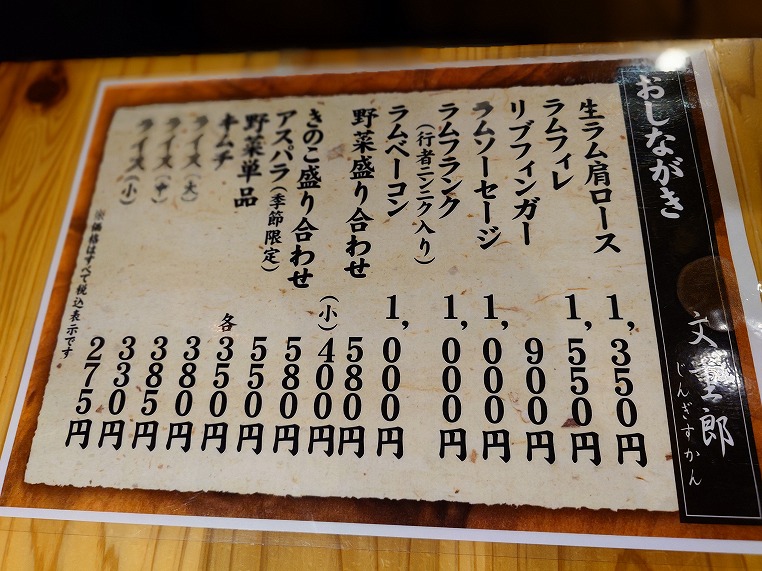 おしながき
じんぎすかん
生ラム肩ロース 1,350円
ラムフィレ 1,550円
リブフィンガー 900円
ラムソーセージ 1,000円
ラムフランク 1,000円
（行者ニンニク入り）
ラムベーコン 1,000円
野菜盛り合わせ 580円
（小）400円
きのこ盛り合わせ 580円
アスパラ（季節限定） 550円
野菜単品 各350円
キムチ 380円
ライス（大） 385円
ライス（中） 330円
ライス（小） 275円
※価格はすべて税込表示です